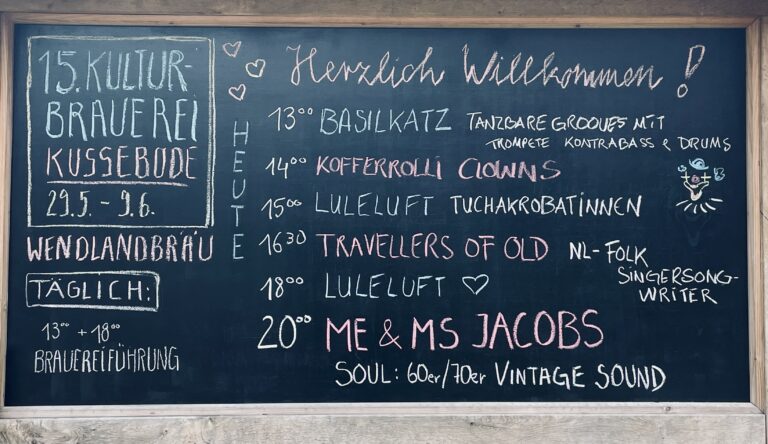 15. KULTUR-
BRAUEREI
KUSSEBODE
29.5. - 9.6.
WENDLANDBRÄU
TÄGLICH:
13⁰⁰ + 18⁰⁰
BRAUEREIFÜHRUNG
HEUTE
Herzlich Willkommen!
13⁰⁰ BASILKATZ TANZBARE GROOVES MIT
TROMPETE KONTRABASS & DRUMS
14⁰⁰ KOFFERROLLI CLOWNS
15⁰⁰ LULELUFT TUCHAKROBATiNNEN
16³⁰ TRAVELLERS OF OLD NL-FOLK
SINGERSONG-
WRITER
18⁰⁰ LULELUFT ♡
20⁰⁰ ME & MS JACOBS
SOUL: 60er/70er VINTAGE SOUND